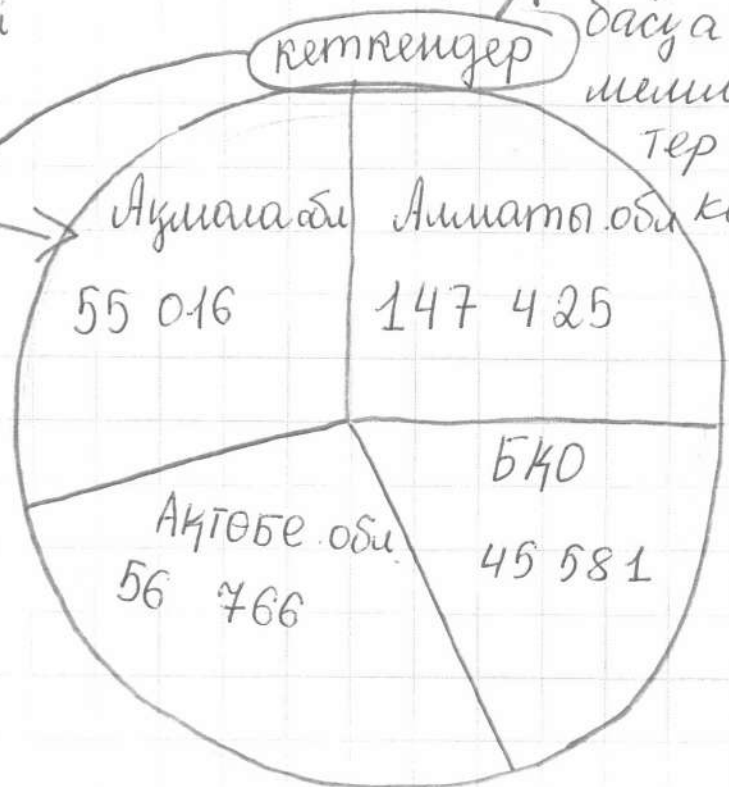 кеткендер
басқа
тер
Ақмола обл
Алматы обл
55 016
147 425
БҚО
45 581
Ақтөбе обл
56 766